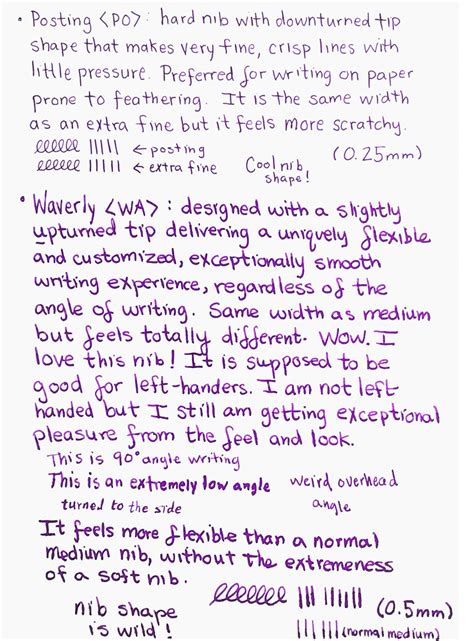 • Posting <PO>: hard nib with downturned tip
shape that makes very fine, crisp lines with
little pressure. Preferred for writing on paper
prone to feathering. It is the same width
as an extra fine but it feels more scratchy.
←posting
←extra fine
Cool nib
shape!
(0.25mm)
• Waverly <WA>: designed with a slightly
upturned tip delivering a uniquely flexible
and customized, exceptionally smooth
writing experience, regardless of the
angle of writing. Same width as medium
but feels totally different. Wow. I
love this nib! It is supposed to be
good for left-handers. I am not left-
handed but I still am getting exceptional
pleasure from the feel and look.
This is 90° angle writing
This is an extremely low angle
weird overhead
angle
turned to the side
It feels more flexible than a normal
medium nib, without the extremeness
of a soft nib.
(0.5mm)
nib shape
is wild!
(normal medium)